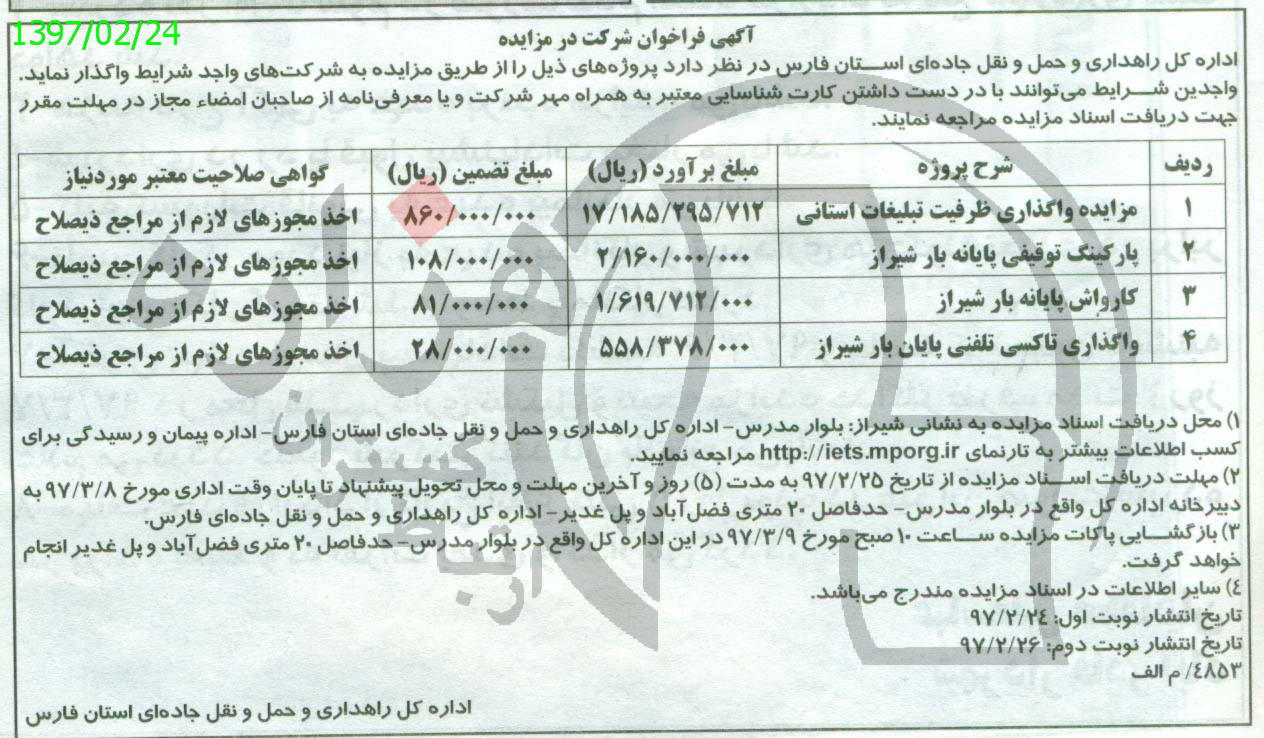 1397/02/24
آگهی فراخوان شرکت در مزایده
اداره کل راهداری و حمل و نقل جاده‌ای اسـتان فارس در نظر دارد پروژه‌های ذیل را از طریق مزایده به شرکت‌های واجد شرایط واگذار نماید.
واجدین شـرایط می‌توانند با در دست داشتن کارت شناسایی معتبر به همراه مهر شرکت و یا معرفی‌نامه از صاحبان امضاء مجاز در مهلت مقرر
جهت دریافت اسناد مزایده مراجعه نمایند.
ردیف شرح پروژه مبلغ برآورد (ریال) مبلغ تضمین (ریال) گواهی صلاحیت معتبر موردنیاز
۱ مزایده واگذاری ظرفیت تبلیغات استانی ۱۷/۱۸۵/۲۹۵/۷۱۲ ۸۶۰/۰۰۰/۰۰۰ اخذ مجوزهای لازم از مراجع ذیصلاح
۲ پارکینگ توقیفی پایانه بار شیراز ۲/۱۶۰/۰۰۰/۰۰۰ ۱۰۸/۰۰۰/۰۰۰ اخذ مجوزهای لازم از مراجع ذیصلاح
۳ کارواش پایانه بار شیراز ۱/۶۱۹/۷۱۲/۰۰۰ ۸۱/۰۰۰/۰۰۰ اخذ مجوزهای لازم از مراجع ذیصلاح
۴ واگذاری تاکسی تلفنی پایان بار شیراز ۵۵۸/۳۷۸/۰۰۰ ۲۸/۰۰۰/۰۰۰ اخذ مجوزهای لازم از مراجع ذیصلاح
۱) محل دریافت اسناد مزایده به نشانی شیراز: بلوار مدرس- اداره کل راهداری و حمل و نقل جاده‌ای استان فارس- اداره پیمان و رسیدگی برای
کسب اطلاعات بیشتر به تارنمای http://iets.mporg.ir مراجعه نمایید.
۲) مهلت دریافت اسـناد مزایده از تاریخ ۹۷/۲/۲۵ به مدت (۵) روز و آخرین مهلت و محل تحویل پیشنهاد تا پایان وقت اداری مورخ ۹۷/۳/۸ به
دبیرخانه اداره کل واقع در بلوار مدرس- حدفاصل ۲۰ متری فضل‌آباد و پل غدیر- اداره کل راهداری و حمل و نقل جاده‌ای فارس.
۳) بازگشـایی پاکات مزایده سـاعت ۱۰ صبح مورخ ۹۷/۳/۹ در این اداره کل واقع در بلوار مدرس- حدفاصل ۲۰ متری فضل‌آباد و پل غدیر انجام
خواهد گرفت.
٤) سایر اطلاعات در اسناد مزایده مندرج می‌باشد.
تاریخ انتشار نوبت اول: ۹۷/۲/۲٤
تاریخ انتشار نوبت دوم: ۹۷/۲/۲۶
٤۸۵۳/ م الف
اداره کل راهداری و حمل و نقل جاده‌ای استان فارس